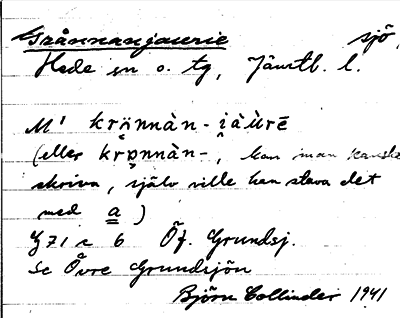 Grånnanjaurie sjö,
Hede sn o. tg, Jämtl. l.
M' krönnàn-i̯àùrē
(eller krɒnnàn-, kan man kanske
skriva, själv ville han stava det
med a)
Z 71 c 6 Öf. Grundsj.
Se Övre Grundsjön
Björn Collinder 1941